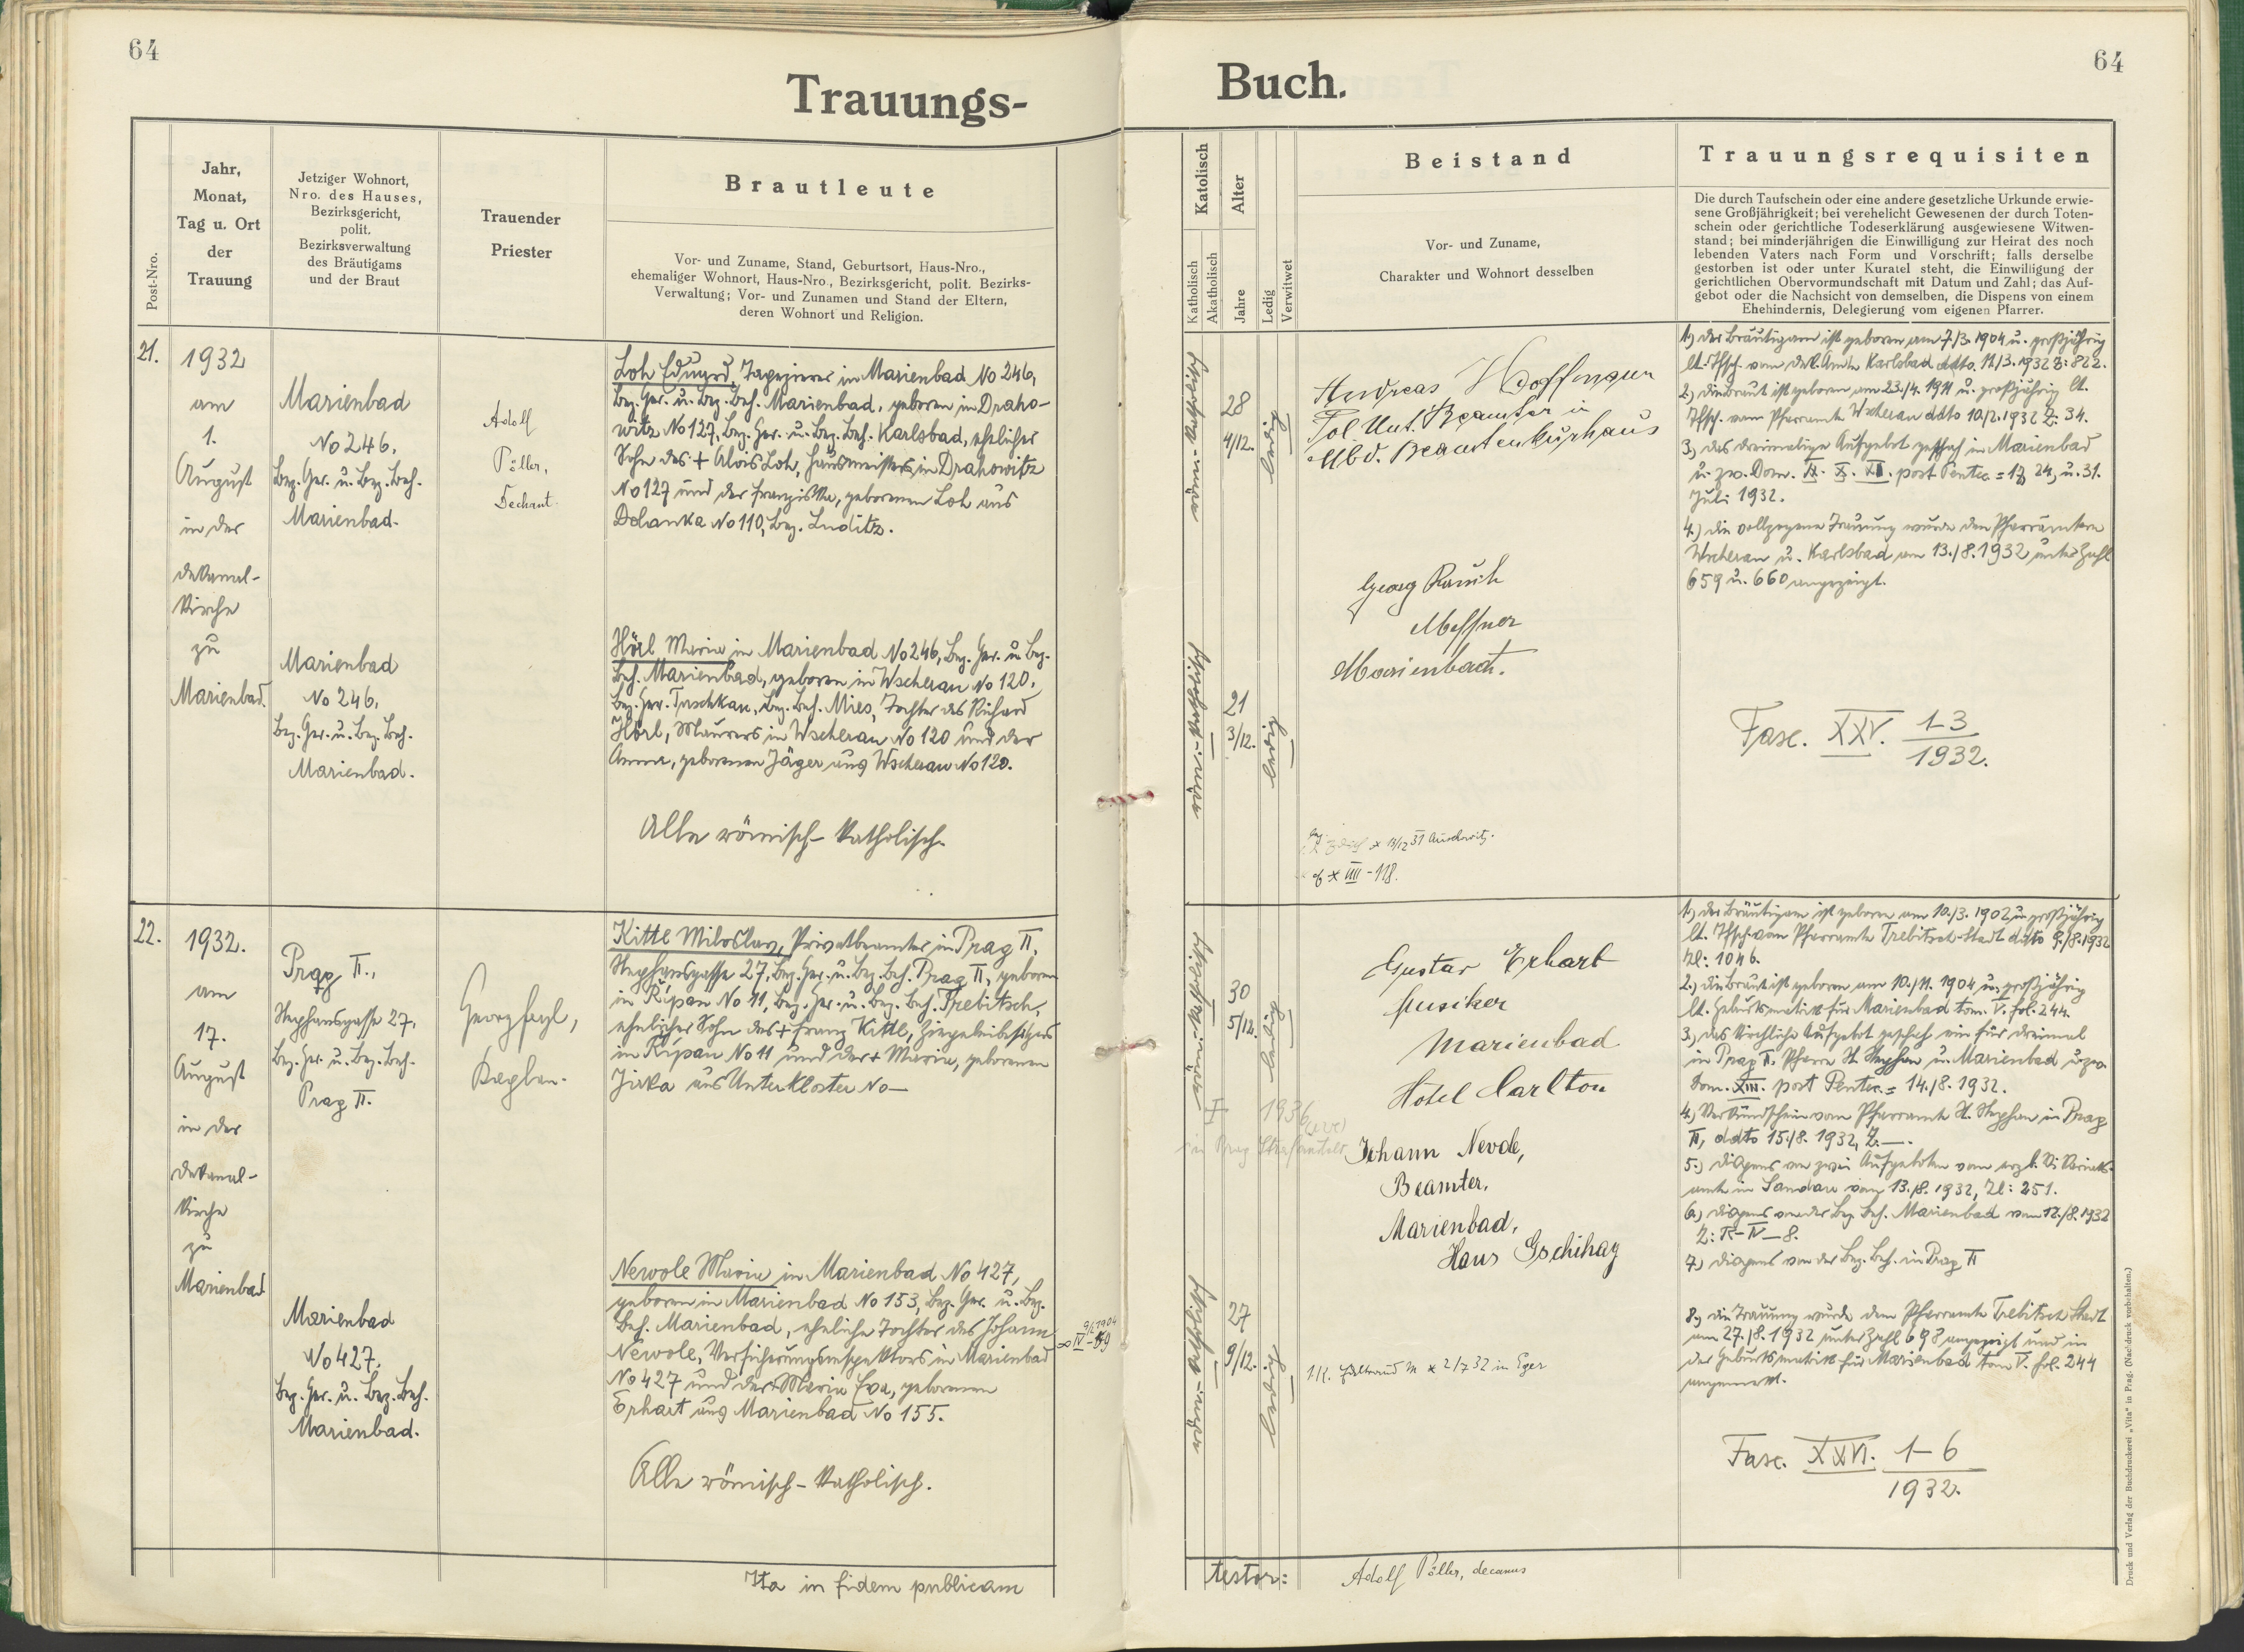 64
64
Trauungs-
Buch.
Post-Nro.
Jahr,
Monat,
Tag u. Ort
der
Trauung
Jetziger Wohnort,
Nro. des Hauses,
Bezirksgericht,
polit.
Bezirksverwaltung
des Bräutigams
und der Braut
Trauender
Priester
Brautleute
Vor- und Zuname, Stand, Geburtsort, Haus-Nro.,
ehemaliger Wohnort, Haus-Nro., Bezirksgericht, polit. Bezirks-
Verwaltung; Vor- und Zunamen und Stand der Eltern,
deren Wohnort und Religion.
Katolisch
Katholisch
Akatholisch
Alter
Jahre
Ledig
Verwitwet
Beistand
Vor- und Zuname,
Charakter und Wohnort desselben
Trauungsrequisiten
Die durch Taufschein oder eine andere gesetzliche Urkunde erwie-
sene Großjährigkeit; bei verehelicht Gewesenen der durch Toten-
schein oder gerichtliche Todeserklärung ausgewiesene Witwen-
stand; bei minderjährigen die Einwilligung zur Heirat des noch
lebenden Vaters nach Form und Vorschrift; falls derselbe
gestorben ist oder unter Kuratel steht, die Einwilligung der
gerichtlichen Obervormundschaft mit Datum und Zahl; das Auf-
gebot oder die Nachsicht von demselben, die Dispens von einem
Ehehindernis, Delegierung vom eigenen Pfarrer.
21.
1932
am
1.
August
in der
Dekanal-
kirche
zu
Marienbad.
Marienbad
No 246.
Bez. Ger. u. Bez. Beh.
Marienbad.
Marienbad
No 246.
Bez. Ger. u. Bez. Beh.
Marienbad.
Adolf
Pöller,
Dechant.
Loh Eduard, Tapezierer in Marienbad No 246,
Bez. Ger. u. Bez. Beh. Marienbad, geboren in Draho-
witz No 127, Bez. Ger. u. Bez. Beh. Karlsbad, ehelicher
Sohn des + Alois Loh, Hausmeisters in Drahowitz
No 127 und der Franziska, geborenen Loh aus
Dolanka No 110, Bez. Luditz.
Hörl Maria in Marienbad No 246, Bez. Ger. u. Bez.
Beh. Marienbad, geboren in Wscherau No 120,
Bez. Ger. Tuschkau, Bez. Beh. Mies, Tochter des Richard
Hörl, Maurers in Wscherau No 120 und der
Anna, geborenen Jäger aus Wscherau No 120.
Alle römisch-katholisch.
römisch-katholisch
28
4/12.
ledig
römisch-katholisch
21
3/12.
ledig
Andreas Hoffmann
Pol. Unt. Beamter in
Mbd. Beamtenkurhaus
Georg Rausch
Messner
Marienbad.
1.) der Bräutigam ist geboren am 7./3. 1904 u. großjährig
lt. Tfsch. vom Dek. Amte Karlsbad ddto. 11./3. 1932 Z: 822.
2.) die Braut ist geboren am 23./4. 1911 u. großjährig lt.
Tfsch. vom Pfarramte Wscherau ddto 10./2. 1932 Z: 34.
3.) das dreimalige Aufgebot geschah in Marienbad
u. zw. Dom. IX. X. XI. post Pentec. = 17, 24, u. 31.
Juli 1932.
4.) die vollzogene Trauung wurde den Pfarrämtern
Wscherau u. Karlsbad am 13./8. 1932 unter Zahl
659 u. 660 angezeigt.
Fasc. XXV. 1-3
1932.
22.
1932.
am
17.
August
in der
Dekanal-
kirche
zu
Marienbad
Prag II.,
Stephansgasse 27,
Bez. Ger. u. Bez. Beh.
Prag II.
Marienbad
No 427.
Bez. Ger. u. Bez. Beh.
Marienbad.
Georg
Kaplan.
Kittl Miloslav, Privatbeamter in Prag II.
Stephansgasse 27, Bez. Ger. u. Bez. Beh. Prag II, geboren
in Řipau No 11, Bez. Ger. u. Bez. Beh. Trebitsch,
ehelicher Sohn des + Franz Kittl, Ziegeleibesitzers
in Řipau No 11 und der + Maria, geborenen
Jirka aus Unterkloster No —
Newole Maria in Marienbad No 427,
geboren in Marienbad No 153, Bez. Ger. u. Bez.
Beh. Marienbad, eheliche Tochter des Johann
Newole, Versicherungsinspektors in Marienbad
No 427 und der Maria Eva, geborenen
Erhart aus Marienbad No 155.
Alle römisch-katholisch.
römisch-katholisch
30
5/12.
ledig
1936
in Prag
römisch-katholisch
27
9/12.
ledig
Gustav Erhart
Musiker
Marienbad
Hotel Carlton
Johann Nevole,
Beamter,
Marienbad,
Hans Gschihay
2/7 32 in Eger
1.) der Bräutigam ist geboren am 10./3. 1902 u. großjährig
lt. Tfsch. vom Pfarramte Trebitsch-Stadt ddto 9./8. 1932
Zl: 1046.
2.) die Braut ist geboren am 10./11. 1904 u. großjährig
lt. Geburtsmatrik für Marienbad tom. V. fol. 244.
3.) das kirchliche Aufgebot geschah ein für dreimal
in Prag II. Pfarre St. Stephan u. Marienbad u. zw.
Dom. XIII. post Pentec. = 14./8. 1932.
4.) Verkündschein vom Pfarramte St. Stephan in Prag
II, ddto 15./8. 1932, Z. —.
5.) Dispens von zwei Aufgeboten vom erzb. Vikariats-
amte in Sandau vom 13./8. 1932, Zl: 251.
6.) Dispens von der Bez. Beh. Marienbad vom 12./8. 1932
7.) Dispens von der Bez. Beh. in Prag II
8.) die Trauung wurde dem Pfarramte Trebitsch Stadt
am 27./8. 1932 unter Zahl 698 angezeigt und in
der Geburtsmatrik für Marienbad tom V. fol. 244
angemerkt.
Fasc. XXVI. 1-6
1932.
Ita in fidem publicam
testor:
Adolf Pöller, decanus
Druck und Verlag der Buchdruckerei „Vita" in Prag. (Nachdruck vorbehalten.)